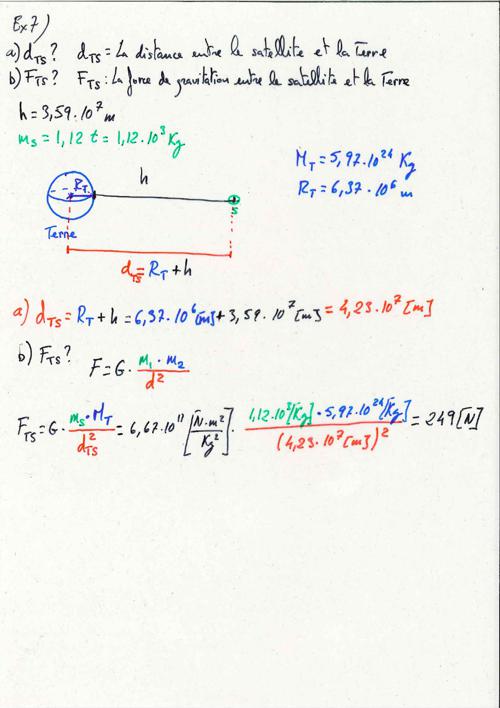 Ex 7)
a) dTS? dTS = La distance entre le satellite et la Terre
b) FTS? FTS: La force de gravitation entre le satellite et la Terre
h = 3,59·10⁷ m
ms = 1,12 t = 1,12·10³ Kg
MT = 5,97·10²⁴ Kg
RT = 6,37·10⁶ m
RT
h
S
Terre
dTS = RT + h
a) dTS = RT + h = 6,37·10⁶ [m] + 3,59·10⁷ [m] = 4,23·10⁷ [m]
b) FTS? F = G · m1 · m2 / d²
FTS = G · ms · MT / dTS² = 6,67·10¹¹ [N·m²/Kg²] · 1,12·10³ [Kg] · 5,97·10²⁴ [Kg] / (4,23·10⁷ [m])² = 249 [N]